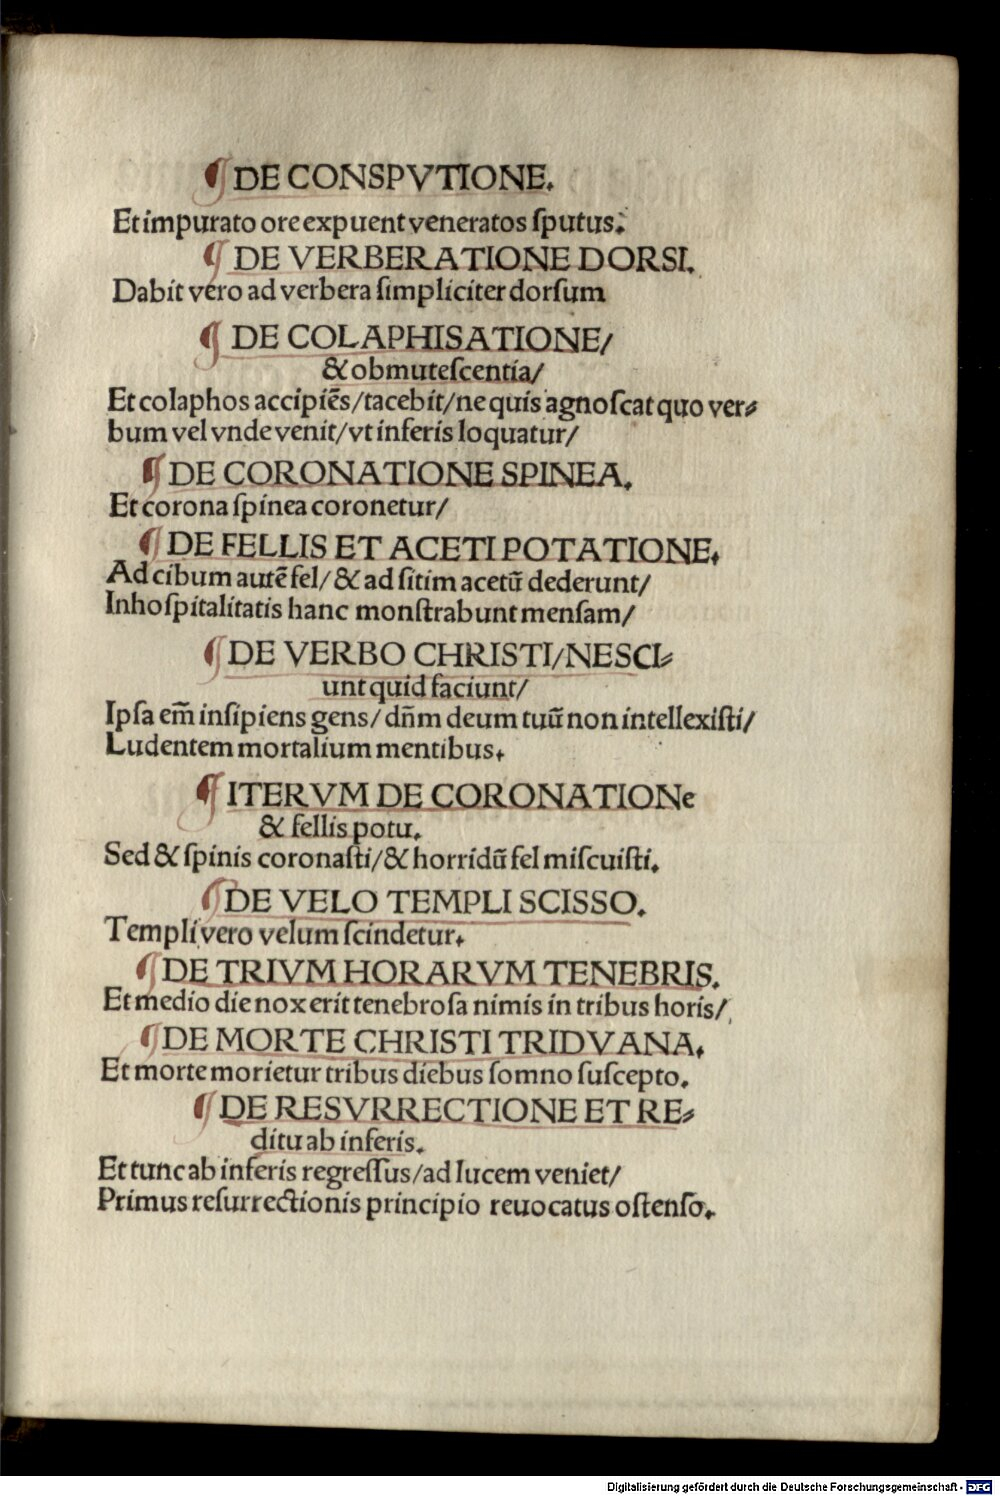 ¶ DE CONSPVTIONE.
Et impurato ore expuent veneratos ſputus.
¶ DE VERBERATIONE DORSI.
Dabit vero ad verbera ſimpliciter dorſum
¶ DE COLAPHISATIONE/
& obmuteſcentia/
Et colaphos accipiēs/tacebit/ne quis agnoſcat quo ver⸗
bum vel vnde venit/vt inferis loquatur/
¶ DE CORONATIONE SPINEA.
Et corona ſpinea coronetur/
¶ DE FELLIS ET ACETI POTATIONE.
Ad cibum autē fel/& ad ſitim acetū dederunt/
Inhoſpitalitatis hanc monſtrabunt menſam/
¶ DE VERBO CHRISTI/NESCI⸗
unt quid faciunt/
Ipſa em̄ inſipiens gens/dn̄m deum tuū non intellexiſti/
Ludentem mortalium mentibus.
¶ ITERVM DE CORONATIONe
& fellis potu.
Sed & ſpinis coronaſti/& horridū fel miſcuiſti.
¶ DE VELO TEMPLI SCISSO.
Templi vero velum ſcindetur.
¶ DE TRIVM HORARVM TENEBRIS.
Et medio die nox erit tenebroſa nimis in tribus horis/
¶ DE MORTE CHRISTI TRIDVANA.
Et morte morietur tribus diebus ſomno ſuſcepto.
¶ DE RESVRRECTIONE ET RE⸗
ditu ab inferis.
Et tunc ab inferis regreſſus/ad lucem veniet/
Primus reſurrectionis principio reuocatus oſtenſo.
Digitalisierung gefördert durch die Deutsche Forschungsgemeinschaft - DFG